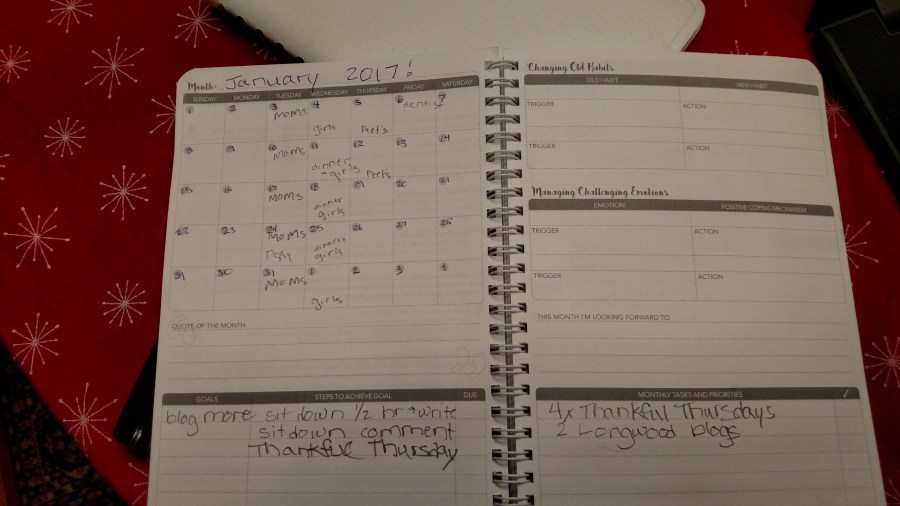 Month: January 2017!
SUNDAY MONDAY TUESDAY WEDNESDAY THURSDAY FRIDAY SATURDAY
1 2 3 4 5 6 7
Moms dentist
girls Peet's
8 9 10 11 12 13 14
Moms dinner
-girls Peet's
15 16 17 18 19 20 21
Moms dinner
girls
22 23 24 25 26 27 28
Moms dinner
girls
29 30 31 1 2 3 4
Moms
girls
QUOTE OF THE MONTH
GOALS STEPS TO ACHIEVE GOAL DUE
blog more sit down 1/2 hr → write
sit down comment
Thankful Thursday
Changing Old Habits
OLD HABIT NEW HABIT
TRIGGER ACTION
TRIGGER ACTION
Managing Challenging Emotions
EMOTION POSITIVE COPING MECHANISM
TRIGGER ACTION
TRIGGER ACTION
THIS MONTH I'M LOOKING FORWARD TO
MONTHLY TASKS AND PRIORITIES ✓
4x Thankful Thursdays
2 Longwood blogs